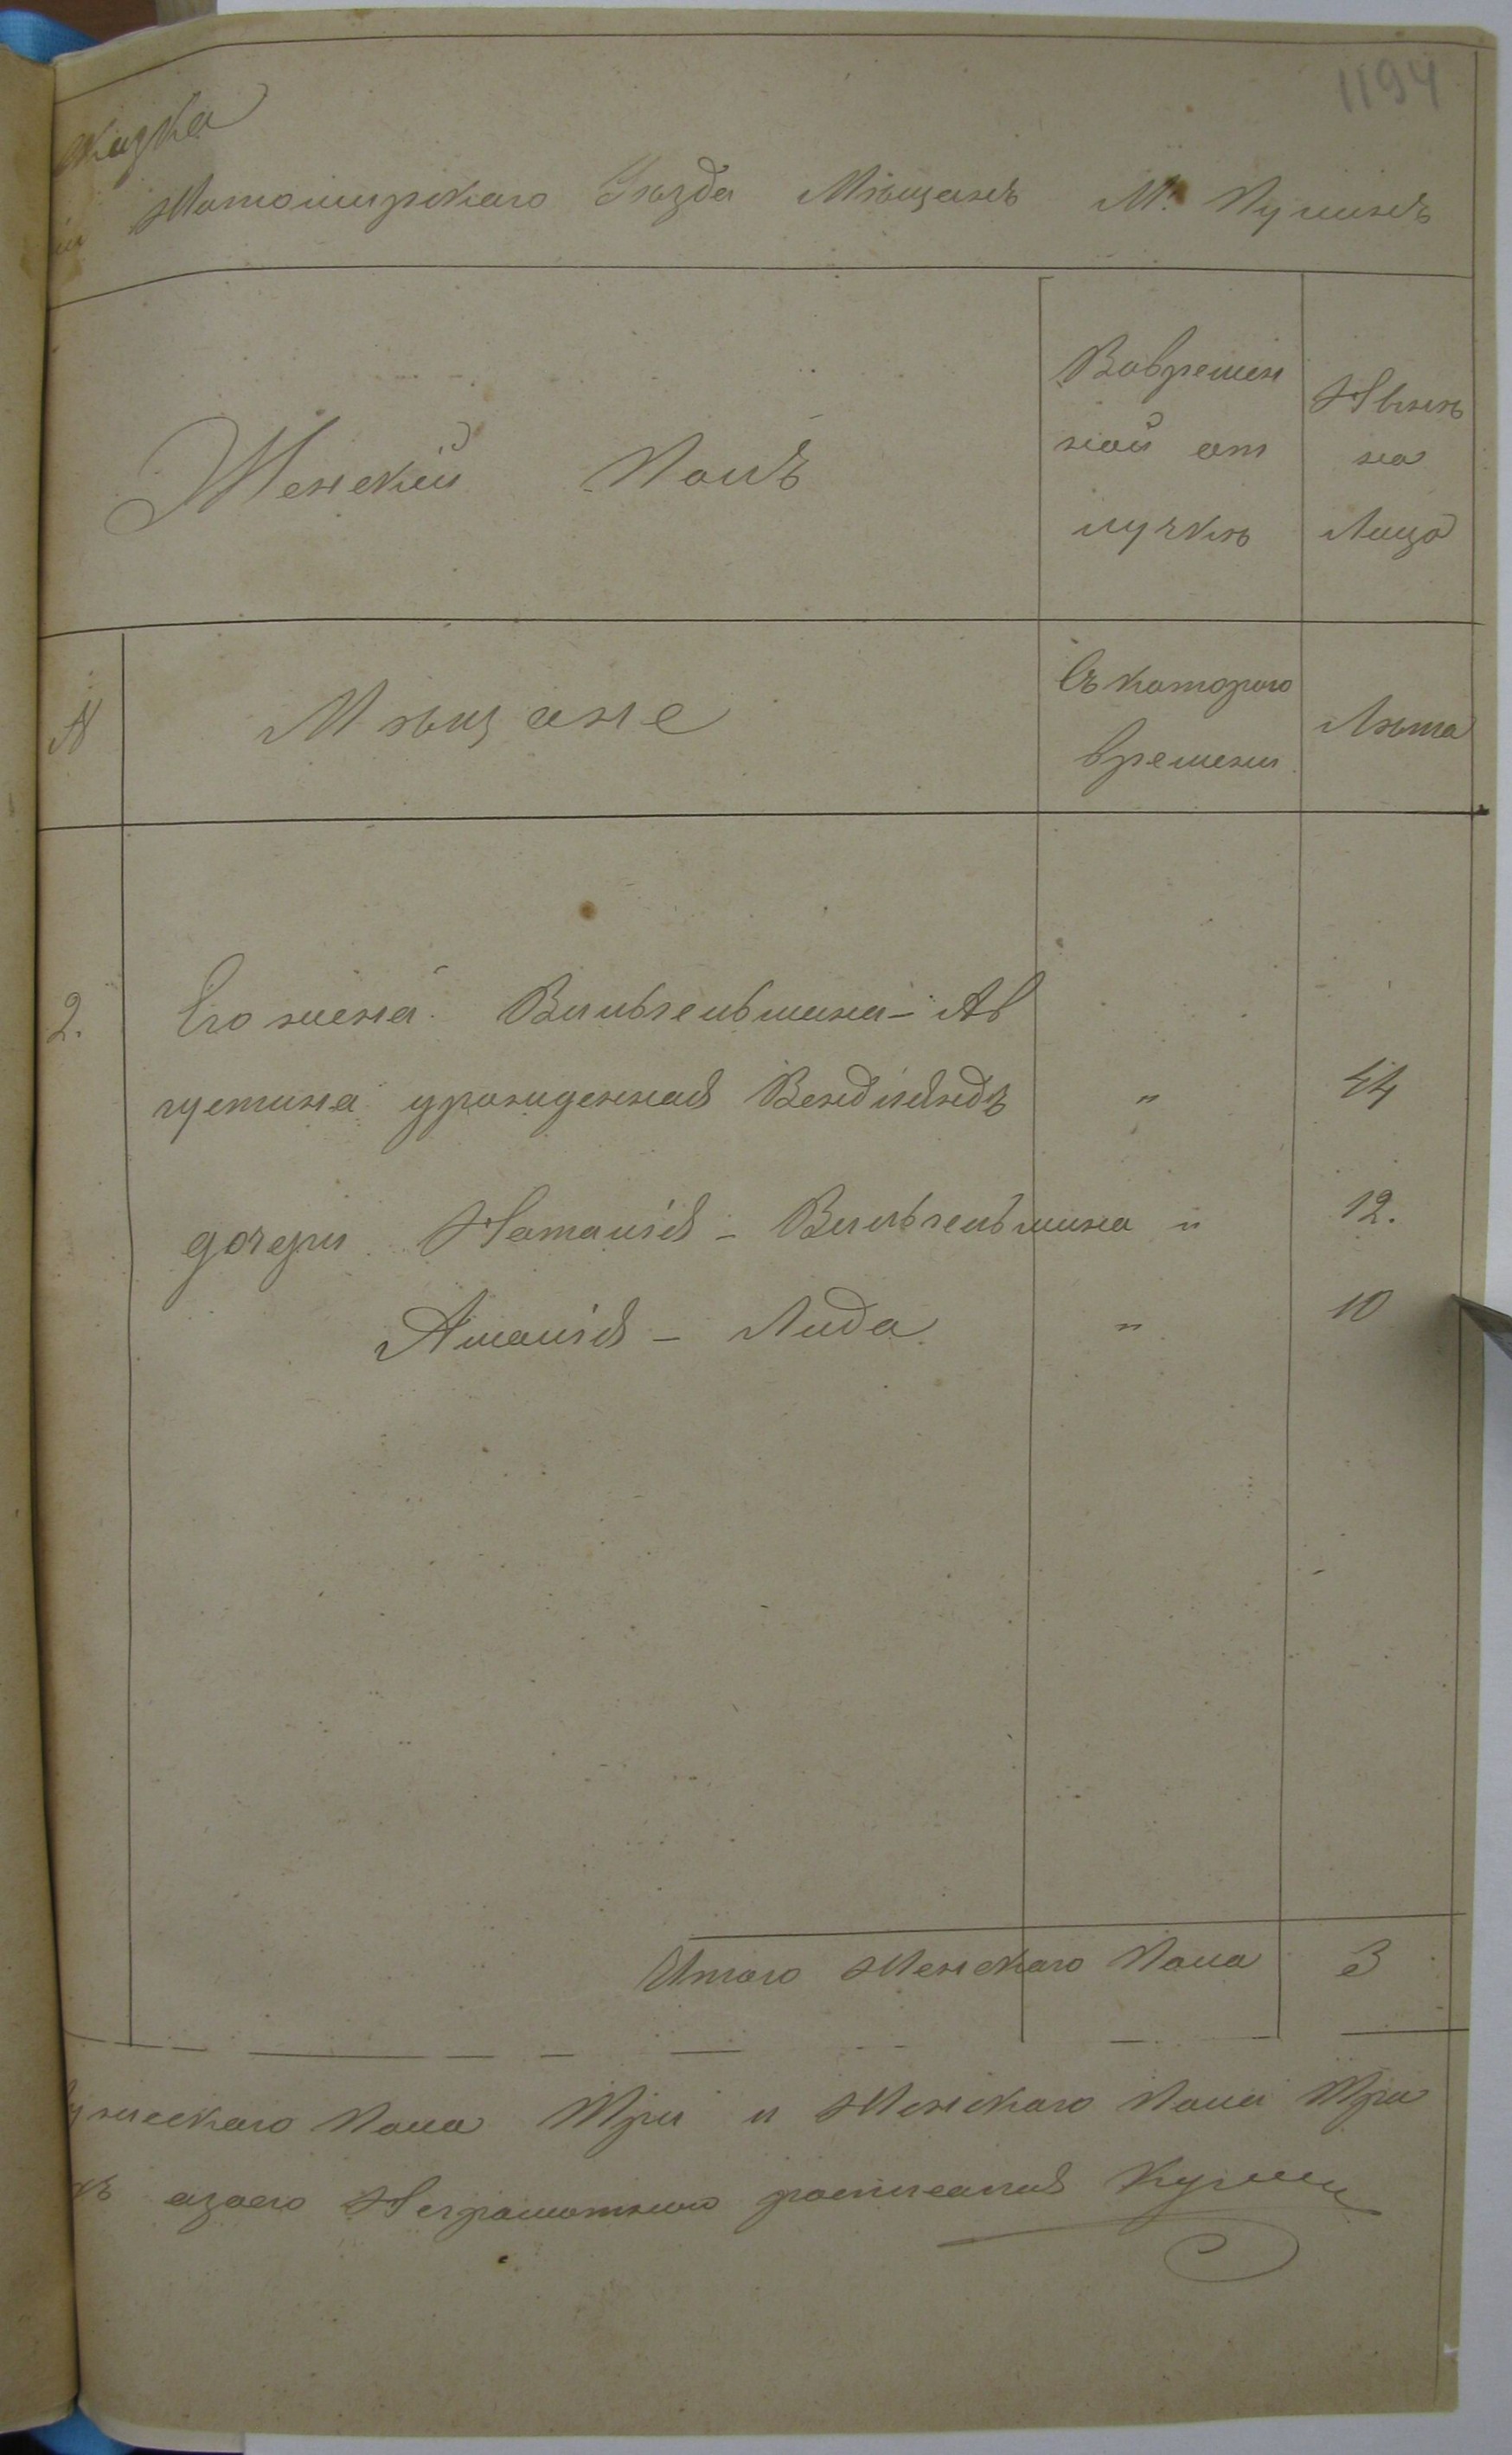 1194
сказка
Житомирскаго Уѣзда Мѣщанъ М. Пулинъ
Женскій Полъ
Вовремен
ной от
лучкѣ
Нынѣ
на
Лицо
№
Мѣщане
Съ котораго
времени
Лѣта
2. Его жена Вильгельмина - Ав
густина урожденная Вендляндъ " 44
дочери Наталія - Вильгельмина " 12.
Амалія - Лида " 10
Итого Женскаго Пола 3
мужескаго Пола Три и Женскаго Пола Три
азаего Неграмотнаго росписался